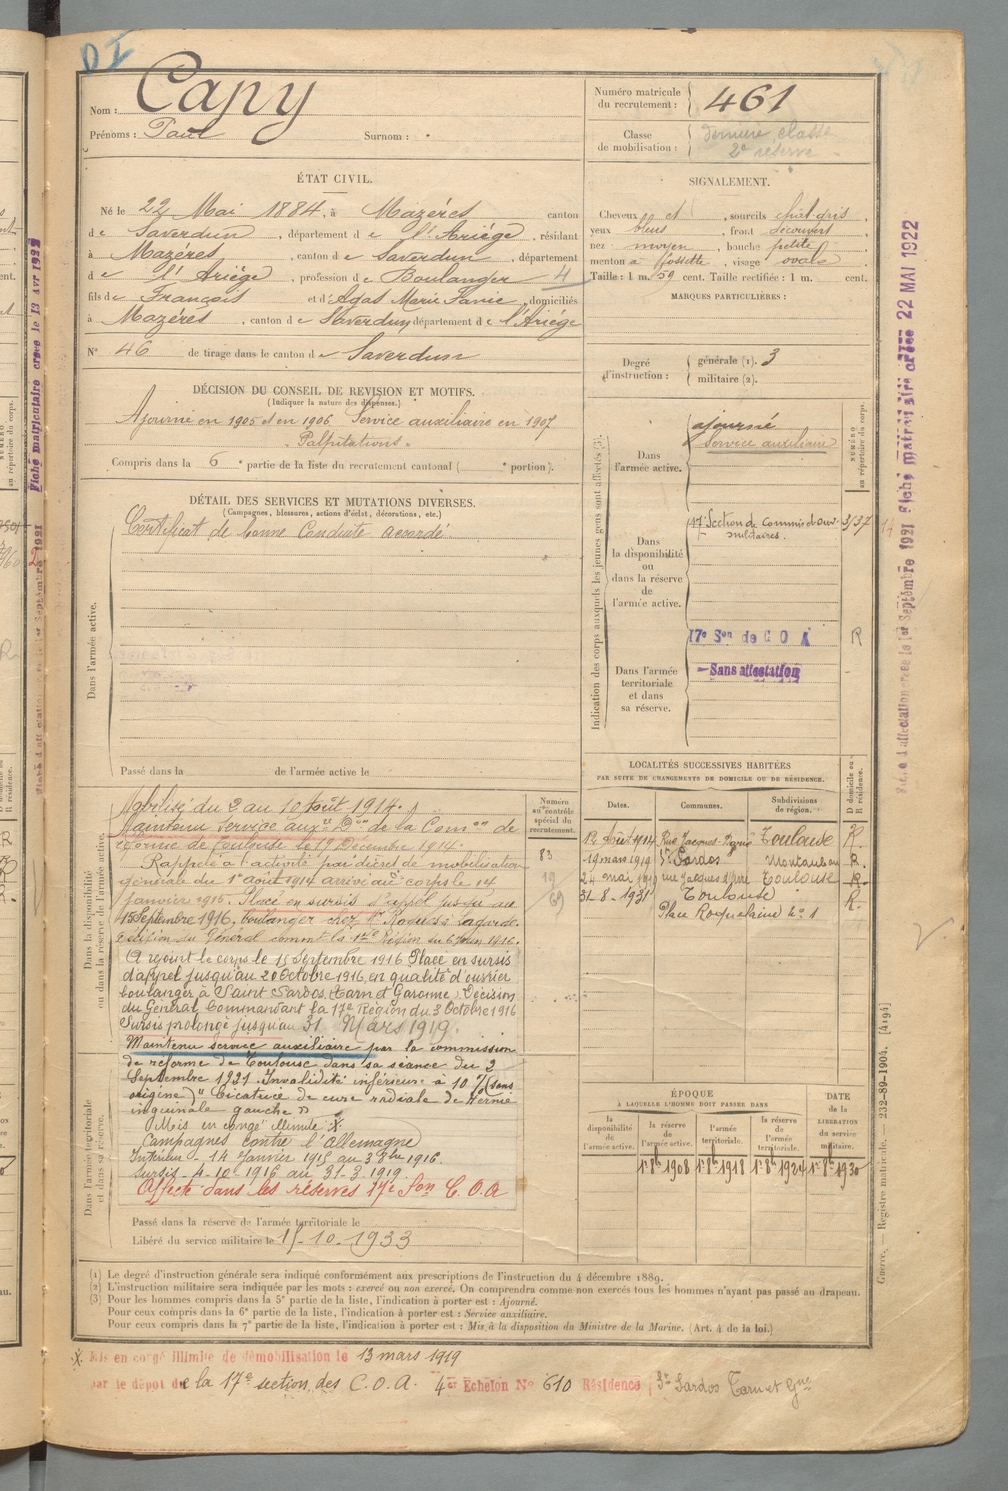 DI
Nom : Capy
Prénoms : Paul Surnom :
Numéro matricule du recrutement : 461
Classe de mobilisation : dernière classe 2e réserve
ÉTAT CIVIL.
Né le 22 Mai 1884, à Mazéres canton
de Saverdun, département de l'Ariége, résidant
à Mazéres, canton de Saverdun, département
de l'Ariége, profession de Boulanger 4
fils de François et d'Agas Marie Fanie, domiciliés
à Mazéres, canton de Saverdun, département de l'Ariége
N° 46 de tirage dans le canton de Saverdun
SIGNALEMENT.
Cheveux et , sourcils chât gris
yeux bleus , front découvert
nez moyen , bouche petite
menton à fossette , visage ovale
Taille : 1 m. 59 cent. Taille rectifiée : 1 m. cent.
MARQUES PARTICULIÈRES :
Degré d'instruction : générale (1). 3
militaire (2).
DÉCISION DU CONSEIL DE REVISION ET MOTIFS.
(Indiquer la nature des dispenses.)
Ajourné en 1905 et en 1906 Service auxiliaire en 1907
"Palpitations"
Compris dans la 6e partie de la liste du recrutement cantonal ( e portion).
DÉTAIL DES SERVICES ET MUTATIONS DIVERSES.
(Campagnes, blessures, actions d'éclat, décorations, etc.)
Certificat de bonne Conduite accordé
Dans l'armée active.
Passé dans la de l'armée active le
Indication des corps auxquels les jeunes gens sont affectés (3).
NUMÉRO au répertoire du corps.
Dans l'armée active.
ajourné
Service auxiliaire
Dans la disponibilité ou dans la réserve de l'armée active.
17e Section de Commis et ouv. 3/37
militaires.
17e Son de C O A R
Dans l'armée territoriale et dans sa réserve.
Sans affectation
LOCALITÉS SUCCESSIVES HABITÉES
PAR SUITE DE CHANGEMENTS DE DOMICILE OU DE RÉSIDENCE.
D domicile ou R résidence.
Dates. Communes. Subdivisions de région.
Août 1914 Rue Jacques Toulouse R.
19 mars 1919 St Sardos Montauban R.
24 mai 1919 rue Jacques Toulouse R.
31-8-1931 Toulouse R.
Place Roquelaine No 1
Dans la disponibilité ou dans la réserve de l'armée active.
Numéro au contrôle spécial du recrutement.
83
19
69
Mobilisé du 2 au 10 Août 1914.
Maintenu Service auxre Don de la Comon de
réforme de Toulouse le 19 Décembre 1914.
Rappelé à l'activité par décret de mobilisation
générale du 1er août 1914 arrivé au corps le 14
janvier 1915. Placé en sursis d'appel jusqu'au
15 Septembre 1916, boulanger chez Mr Lagarde.
décision du Général commt la 17e Région du 6 Juin 1916.
A rejoint le corps le 15 Septembre 1916 Placé en sursis
d'appel jusqu'au 20 Octobre 1916, en qualité d'ouvrier
boulanger à Saint Sardos (Tarn et Garonne) Décision
du Général Commandant la 17e Région du 3 Octobre 1916
Sursis prolongé jusqu'au 31 Mars 1919.
Maintenu service auxiliaire par la commission
de réforme de Toulouse dans sa séance du 2
Septembre 1921. Invalidité inférieure à 10 % (sans
origine) "Cicatrice de cure radicale de hernie
inguinale gauche"
Mis en congé illimité X
Campagnes contre l'Allemagne
Intérieur - 14 Janvier 1915 au 3 8bre 1916.
Sursis - 4-10-1916 au 31-3-1919.
Affecté dans les réserves 17e Son C.O.A
Dans l'armée territoriale et dans sa réserve.
Passé dans la réserve de l'armée territoriale le
Libéré du service militaire le 15-10-1933
ÉPOQUE
À LAQUELLE L'HOMME DOIT PASSER DANS
la disponibilité de l'armée active. la réserve de l'armée active. l'armée territoriale. la réserve de l'armée territoriale. DATE de la LIBÉRATION du service militaire.
1er 8bre 1908 1er 8bre 1918 1er 8bre 1924 1er 8bre 1930
(1) Le degré d'instruction générale sera indiqué conformément aux prescriptions de l'instruction du 4 décembre 1889.
(2) L'instruction militaire sera indiquée par les mots : exercé ou non exercé. On comprendra comme non exercés tous les hommes n'ayant pas passé au drapeau.
(3) Pour les hommes compris dans la 5e partie de la liste, l'indication à porter est : Ajourné.
Pour ceux compris dans la 6e partie de la liste, l'indication à porter est : Service auxiliaire.
Pour ceux compris dans la 7e partie de la liste, l'indication à porter est : Mis à la disposition du Ministre de la Marine. (Art. 4 de la loi.)
X Mis en congé illimité de démobilisation le 13 mars 1919
par le dépot de la 17e section des C.O.A. 4e Echelon No 610 Résidence St Sardos Tarn et Gne
Guerre. — Registre matricule. — 232-89-1904. [4194]
Fiche d'affectation créée le 1er Septembre 1921 Fiche matriculaire créée 22 MAI 1922
14
Fiche matriculaire créée le 13 Avr 1922